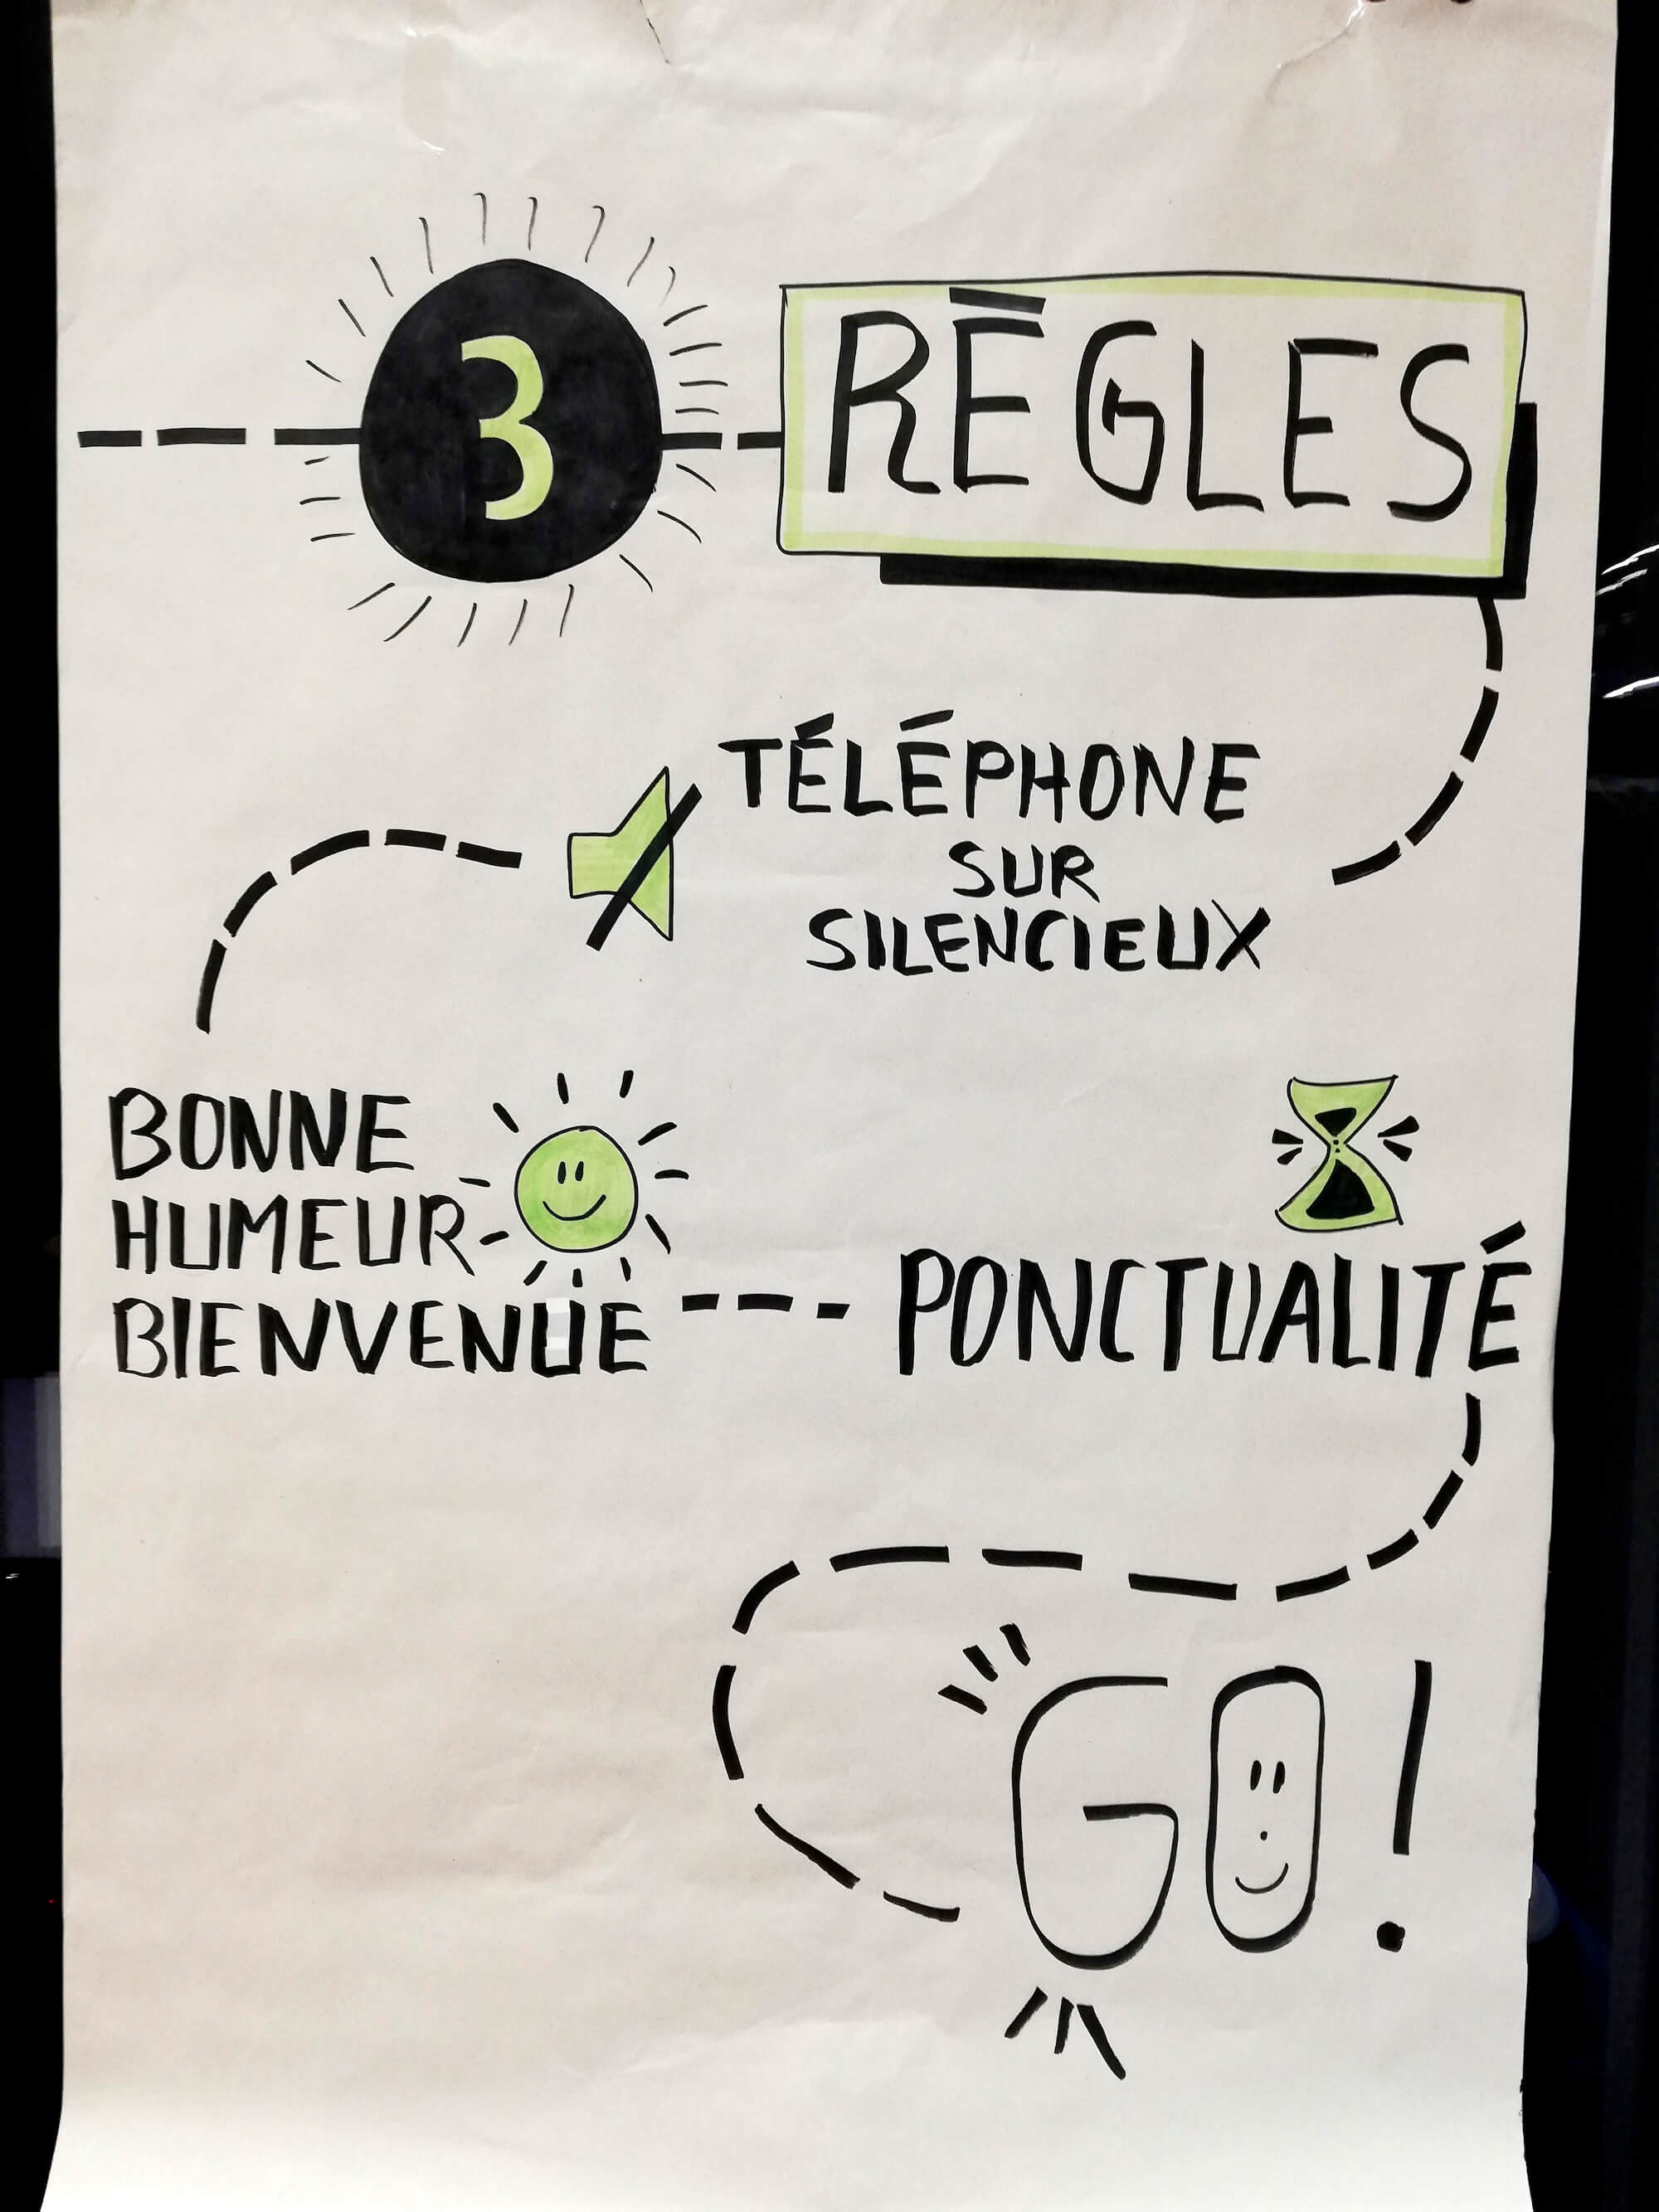 3 RÈGLES
TÉLÉPHONE
SUR
SILENCIEUX
BONNE
HUMEUR
BIENVENUE
PONCTUALITÉ
GO!